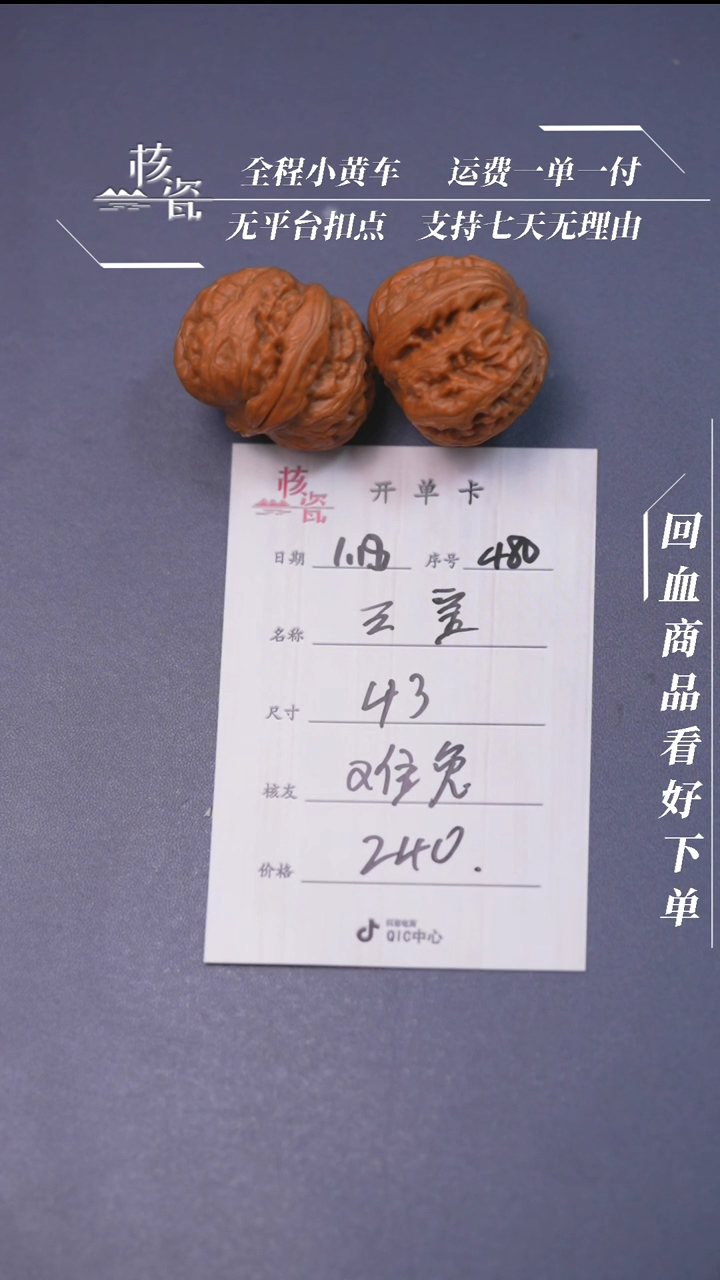 核瓷
全程小黄车 运费一单一付
无平台扣点 支持七天无理由
回血商品看好下单
核瓷
开单卡
日期 序号 480
名称 三
尺寸 43
核友
价格 240.
抖音电商
QIC中心